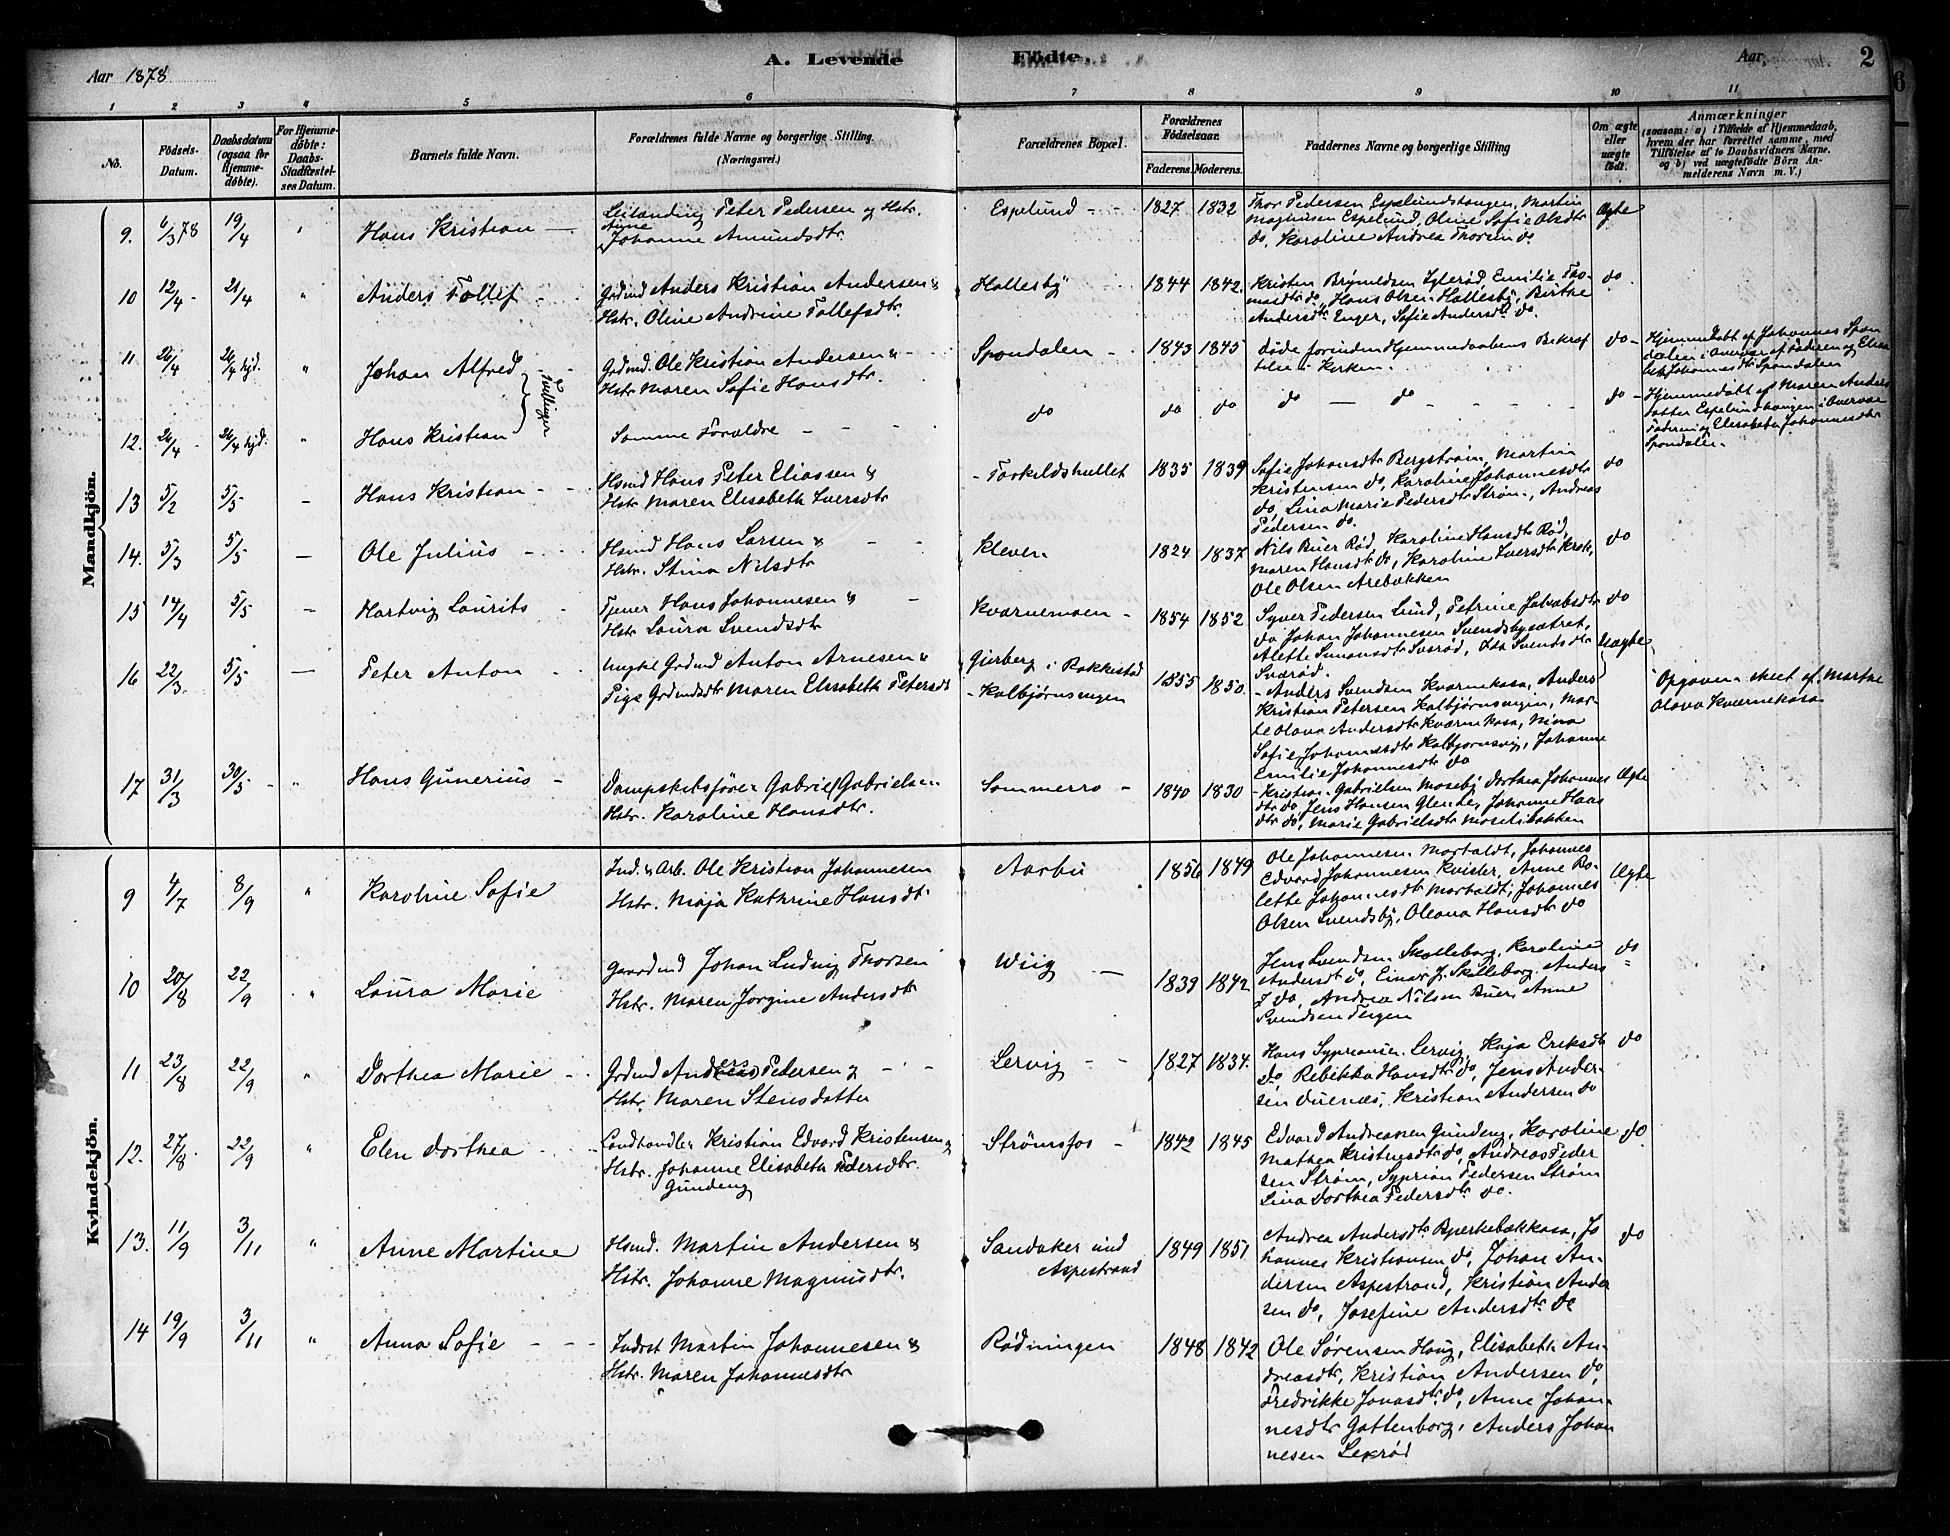 Aar 1878
A. Levende Födte.
Aar
2
1 2 3 4 5 6 7 8 9 10 11
No.
Födsels-Datum.
Daabsdatum (ogsaa for Hjemmedöbte).
For Hjemmedöbte: Daabs-Stadfæstelses Datum.
Barnets fulde Navn.
Forældrenes fulde Navne og borgerlige Stilling.
(Næringsvei.)
Forældrenes Bopæl.
Forældrenes Födselsaar.
Faderens. Moderens.
Faddernes Navne og borgerlige Stilling
Om ægte eller uægte födt.
Anmærkninger
(saasom: a) i Tilfælde af Hjemmedaab, hvem der har forrettet samme, med Tilföielse af to Daabsvidners Navne, og b) ved uægtefödte Börn Anmelderens Navn m. V.)
Mandkjön.
9. 6/3 78 19/4 " Hans Kristian
Leilending Peter Pedersen og Hstr.
Anne
Johanne Amundsdtr.
Espelund 1827 1832
Thor Pedersen Espelundshaugen, Martin
Magnusen Espelund, Oline Sofie Olsdtr
do, Karoline Andrea Thorsen do
Ægte
10 12/4 21/4 " Anders Tollef
Grdmd Anders Kristian Andersen &
Hstr. Oline Andrine Tollefsdtr.
Hallesby 1844 1842.
Kristen Brynildsen
Hans Olsen Hallesby, Birthe
Andersdtr Enger, Sofie Andersdtr do.
do
11. 24/4 24/4 hjd. " Johan Alfred
Tvillinger
Grdmd. Ole Kristian Andersen &
Hstr Maren Sofie Hansdtr.
Spondalen 1843 1845
Døde forinden Hjemmedaabens Bekræf
telse i Kirken.
do
Hjemmedøbt af Johannes Spon
dalen i Overvær af Faderen og Elisa
beth Johannesdtr Spondalen
12. 24/4 24/4 hjd. " Hans Kristian
Samme Forældre
do do do do do do
Hjemmedøbt af Maren Anders
datter Espelundhaugen i Overvær
Faderen og Elisabeth Johannesdtr
Spondalen
13 5/2 5/5 Hans Kristian
Hsmd Hans Peter Eliassen &
Hstr Maren Elisabeth Iversdtr
Torkildshullet 1835 1839
Sofie Johansdtr Bergstrøm, Martin
Kristensen do, Karoline Johannesdtr
do, Lina Marie Pedersdtr Strøm, Andreas
Pedersen do.
do
14. 5/3 5/5 Ole Julius
Hsmd Hans Larsen &
Hstr. Stina Nilsdtr
Kleven 1824 1837
Nils Buer Rød, Karoline Hansdtr Rød,
Maren Hansdtr do, Karoline Iversdtr
Ole Olsen Arebækken
do
15 14/4 5/5 Hartvig Laurits
Tjener Hans Johannesen &
Hstr Laura Svendsdtr
Kværnemoen 1854 1852
Syver Pedersen Lund, Petrine Jakobsdtr
do Johan Johannesen Svendsbysætret,
Alette Simonsdtr Svarød, Ida Svendsdtr
Svarød.
do
16 22/3 5/5 Peter Anton
Ungkl Grdmd Anton Arnesen &
Pige Grdmdsdtr Maren Elisabeth Petersdtr
Gjerberg i Rakkestad
Kolbjørnsvigen
1855 1850.
Anders Svendsen Kværnekasa, Anders
Kristian Petersen Kolbjørnsvigen, Mar-
te Olava Andersdtr Kværnekasa, Nina
Sofie Johannesdtr Kolbjørnsvig, Johanne
Emilie Johannesdtr do
Uægte
Opgaven skeet af Marthe
Olava Kværnekasa
17 31/3 30/5 " Hans Gunerius
Dampskibsfører Gabriel Gabrielsen
Hstr. Karoline Hansdtr.
Sommerro 1840 1830
Kristian Gabrielsen Moseby, Dorthea Johannes
dtr do, Jens Hansen Glende, Johanne Hans
dtr do, Marie Gabrielsdtr Mosebibakken
Ægte
Kvindekjön.
9 4/7 8/9 " Karoline Sofie
Ind. & Arb. Ole Kristian Johannesen
Hstr. Maja Kathrine Hansdtr
Aarbu 1856 1849
Ole Johannesen Mortvedt, Johannes
Edvard Johannesen Kvister, Anne Bo-
lette Johannesdtr Mortvedt, Johannes
Olsen Svendsby, Oleana Hansdtr do
Ægte
10 20/8 22/9 " Laura Marie
Gaardmd Johan Ludvig Thorsen
Hstr. Maren Jørgine Andersdtr
Wiig 1839 1842
Jens Svendsen Skolleborg, Karoline
Andersdtr do, Einar J. Skolleborg, Anders
J do, Andrea Nilsen Buer, Anne
Svendsen Teigen
do
11 23/8 22/9 " Dorthea Marie
Grdmd Anders Pedersen &
Hstr. Maren Stensdatter
Lervig 1827 1834.
Hans Syprians. Lervig, Kaja Eriksdtr
do, Rebekka Hansdtr do, Jens Ander-
sen Buenæs, Kristian Andersen do
do
12. 27/8 22/9 " Elen Dorthea
Landhandler Kristian Edvard Kristensen &
Hstr. Johanne Elisabeth Pedersdtr.
Gundeng
Strømsfos 1842 1845
Edvard Andreasen Gundeng, Karoline
Mathea Kristensdtr do, Andreas Peder
sen Strøm, Syprian Pedersen Strøm
Lina Dorthea Pedersdtr do.
do
13. 11/9 3/11 " Anne Martine
Hsmd. Martin Andersen &
Hstr. Johanne Magnusdtr.
Sandaker und
Aspestrand
1849 1851
Andrea Andersdtr Bjerkebækkasa, Jo
hannes Kristiansen do, Johan An-
dersen Aspestrand, Kristian Ander
sen do, Josefine Andersdtr do
do
14 19/9 3/11 " Anna Sofie
Inderst Martin Johannesen &
Hstr. Maren Johannesdtr
Rødningen 1848 1842
Ole Sørensen Haug, Elisabeth An-
dreasdtr, Kristian Andersen do,
Fredrikke Jonasdtr do, Anne Johan-
nesdtr Gottenborg, Anders Johan
nesen Lekrød